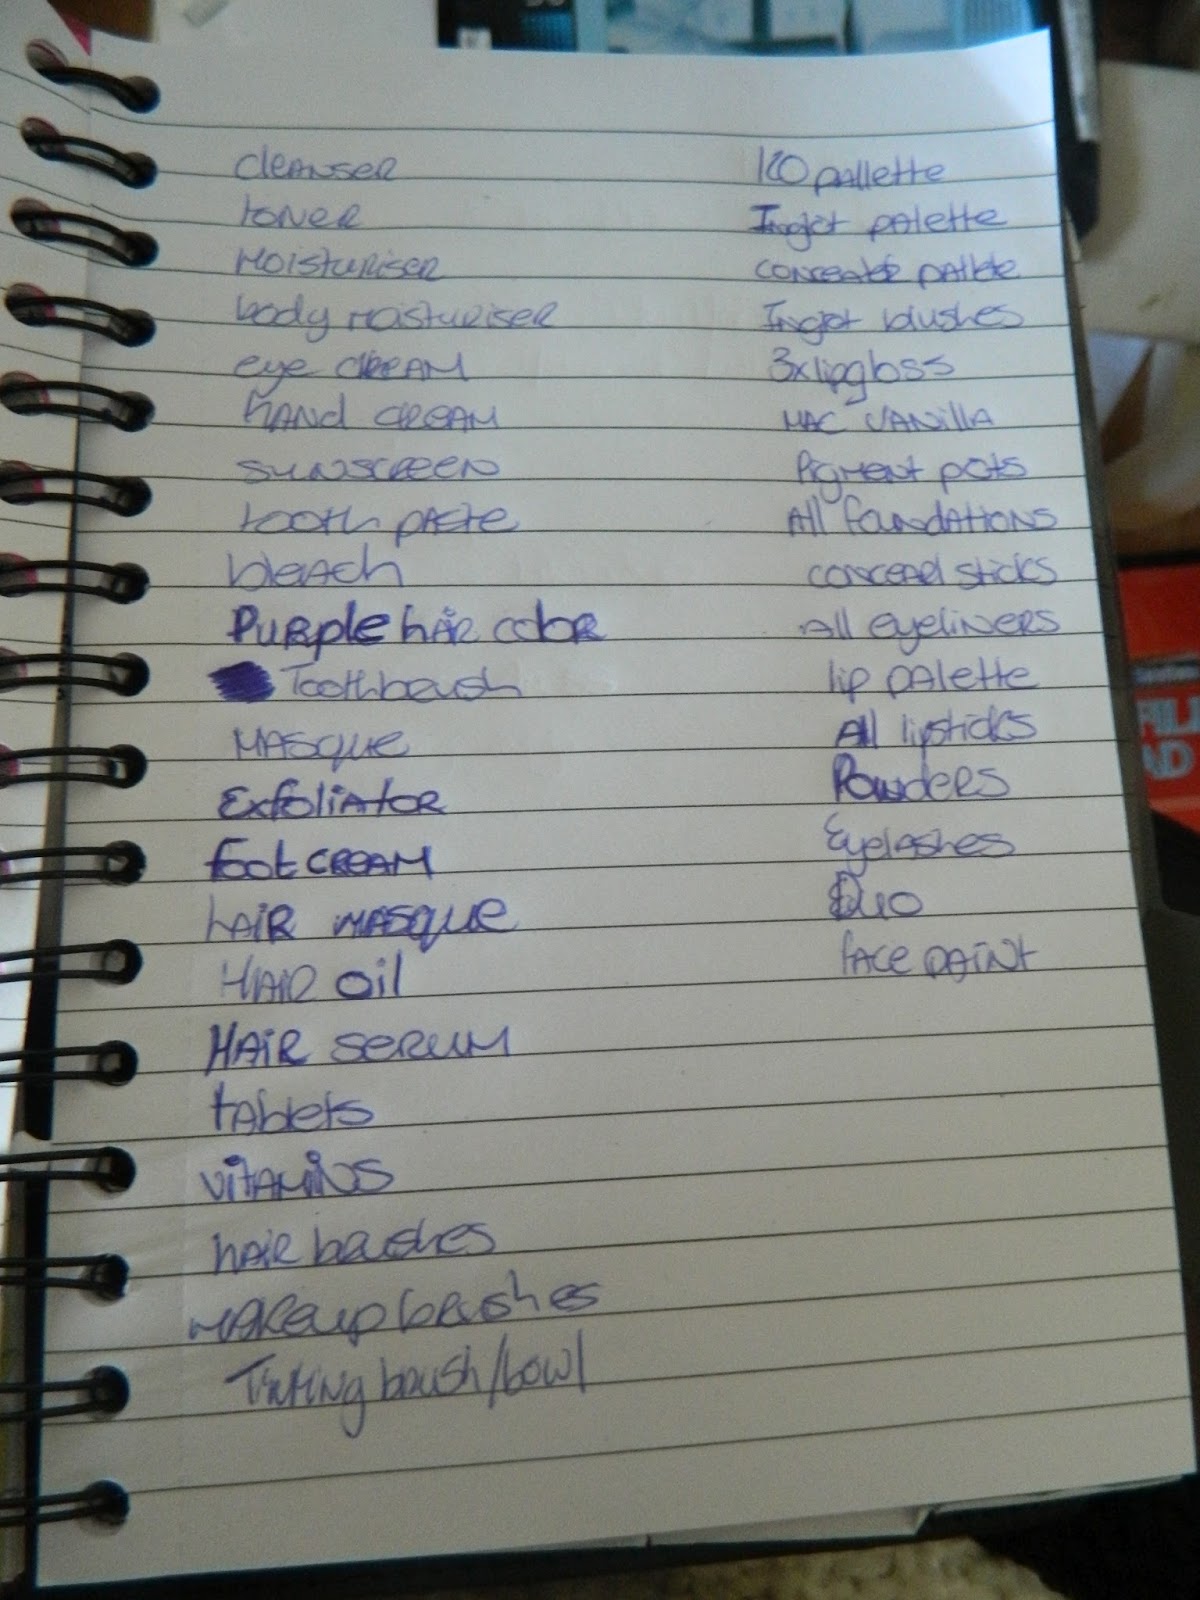 cleanser
toner
Moisturiser
body moisturiser
eye cream
hand cream
sunscreen
tooth paste
bleach
Purple hair color
Toothbrush
Masque
Exfoliator
foot cream
hair masque
Hair oil
Hair serum
tablets
vitamins
hair brushes
makeup brushes
Tinting brush/bowl
120 pallette
palette
concealer pallete
blushes
3x lipgloss
MAC Vanilla
Pigment pots
All foundations
conceal sticks
All eyeliners
lip palette
All lipsticks
Powders
Eyelashes
Duo
face paint